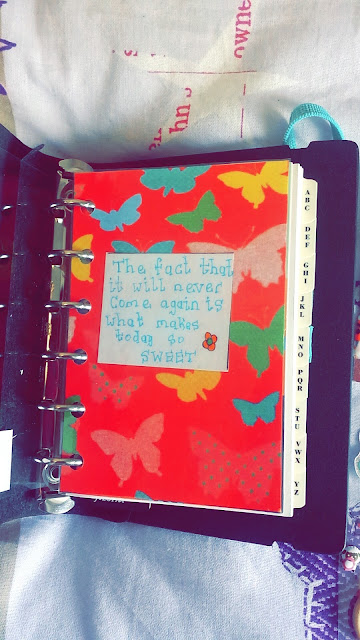 owne
The fact that
it will never
Come again is
what makes
today so
SWEET
ABC
DEF
GHI
JKL
MNO
PQR
STU
VWX
YZ